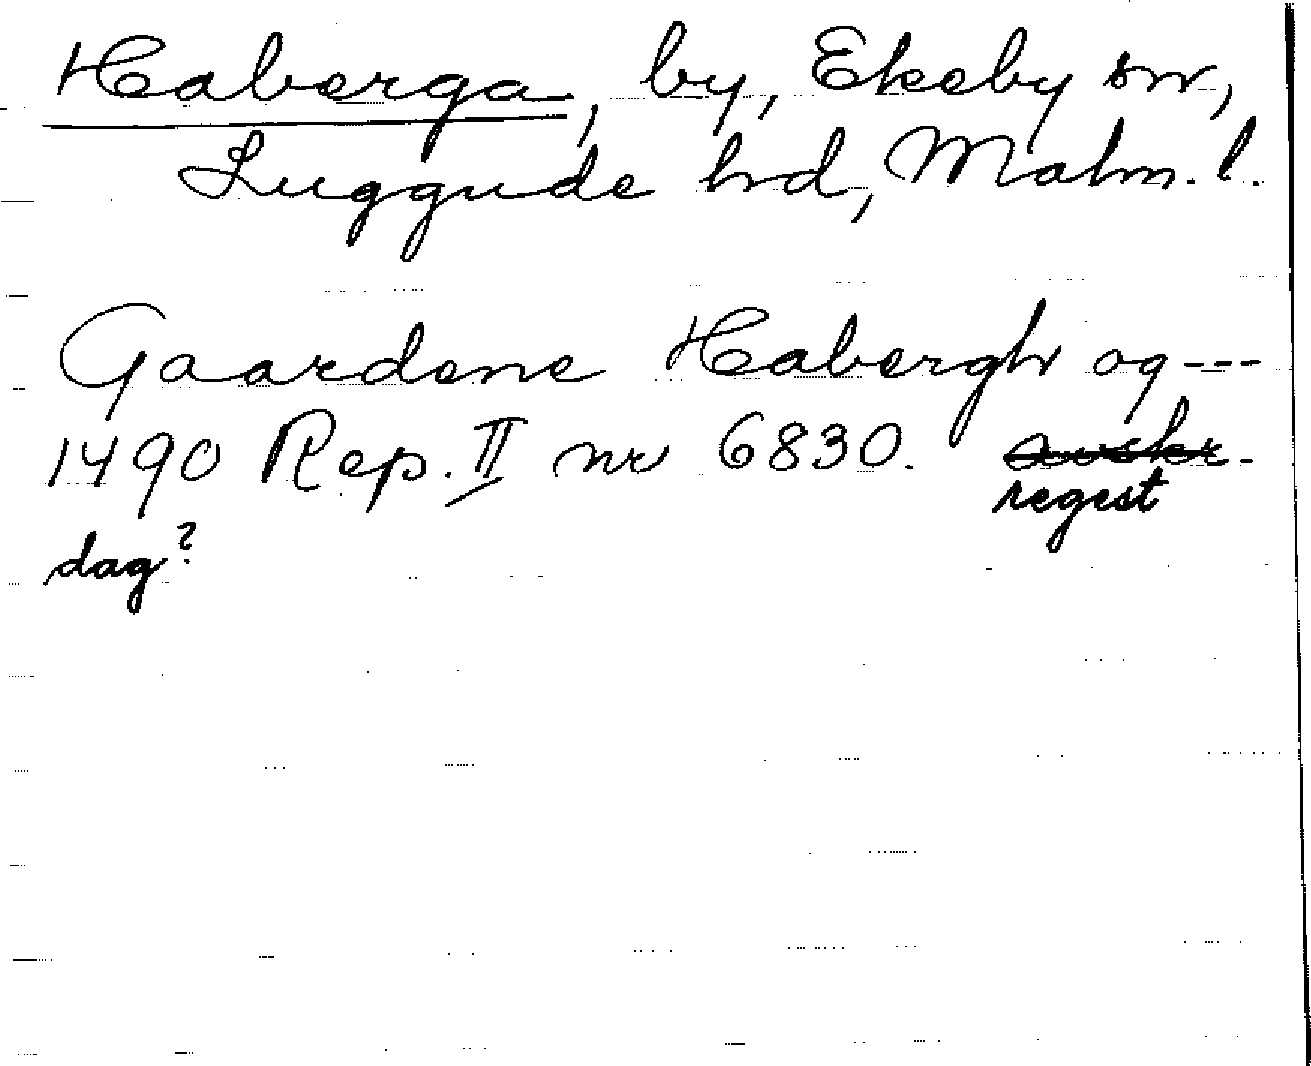 Haberga, by, Ekeby sn,
Luggude hd, Malm. l.
Gaardene Habergh og ---
1490 Rep. II nr 6830. avskr.
regest
dag?